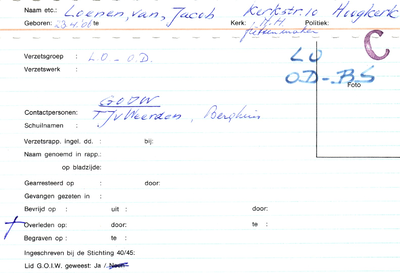 Naam etc.: Loenen, van, Jacob Kerkstr. 10 Hoogkerk
Geboren: 23.4.06 Kerk: N.H Politiek:
Verzetsgroep : LO - O.D. LO
Verzetswerk : OD-BS
C
Foto
GODW
Contactpersonen: TJ v Weerden, Berghuis
Schuilnaam :
Verzetsrapp. ingel. dd. : bij:
Naam genoemd in rapp.:
op bladzijde:
Gearresteerd op : door:
Gevangen gezeten in :
Bevrijd op : uit : door:
Overleden op: door: te :
Begraven op : te :
Ingeschreven bij de Stichting 40/45:
Lid G.O.I.W. geweest: Ja /